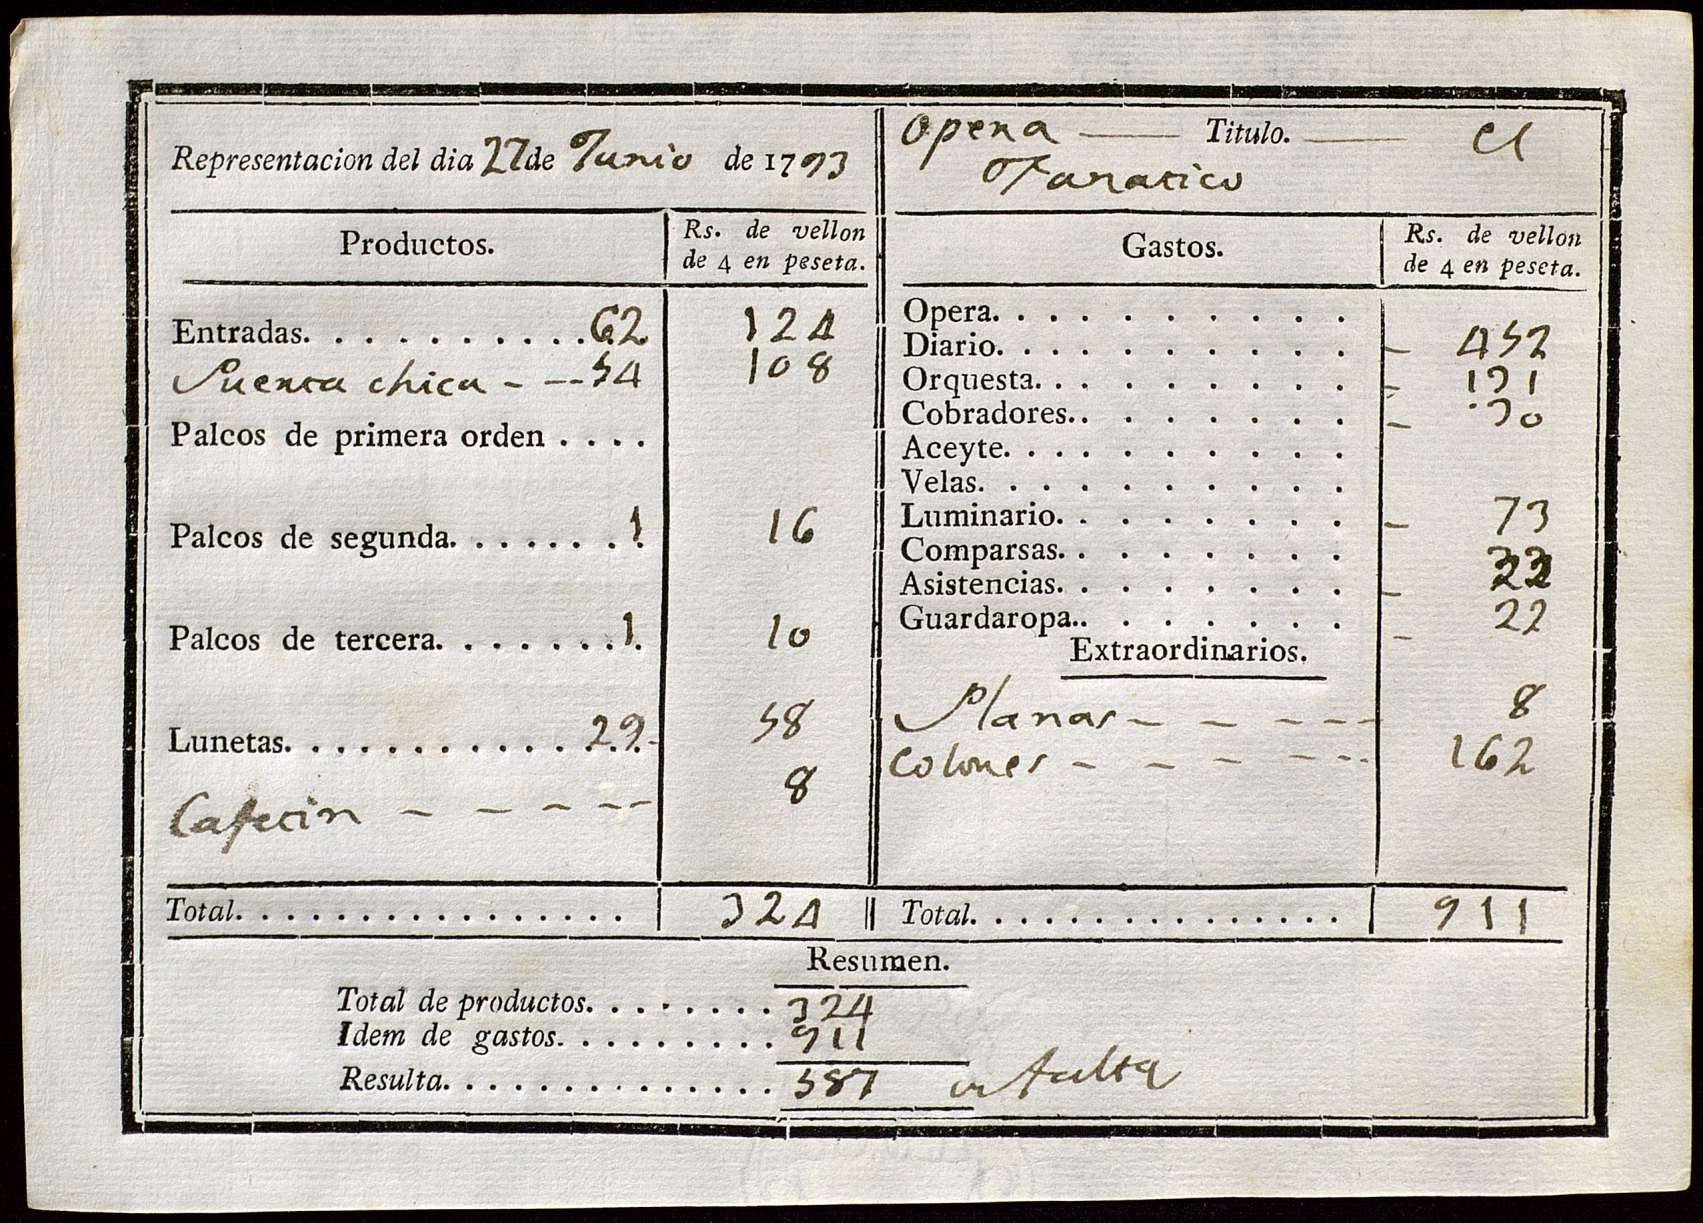 Representacion del dia 27 de Junio de 1793
Productos.
Rs. de vellon
de 4 en peseta.
Entradas. . . . . . . . . . . 62 124
Puerta chica - -- 54 108
Palcos de primera orden . . . .
Palcos de segunda. . . . . . . 1. 16
Palcos de tercera. . . . . . . 1. 10
Lunetas. . . . . . . . . . . . 29. 58
Cafetin - - - - -- 8
Total. . . . . . . . . . . . . . . . 324
Opera — Titulo. — El
Fanatico
Gastos.
Rs. de vellon
de 4 en peseta.
Opera. . . . . . . . . .
Diario. . . . . . . . . . - 452
Orquesta. . . . . . . . . - 131
Cobradores.. . . . . . . . - 30
Aceyte. . . . . . . . . .
Velas. . . . . . . . . . .
Luminario. . . . . . . . - 73
Comparsas. . . . . . . .
Asistencias. . . . . . . . - 33
Guardaropa.. . . . . . . - 22
Extraordinarios.
Planas - - - - -- 8
Colones - - - - -- 162
Total. . . . . . . . . . . . . . . 911
Resumen.
Total de productos. . . . . . . . 324
Idem de gastos. . . . . . . . . 911
Resulta. . . . . . . . . . . . . . 587 en falta